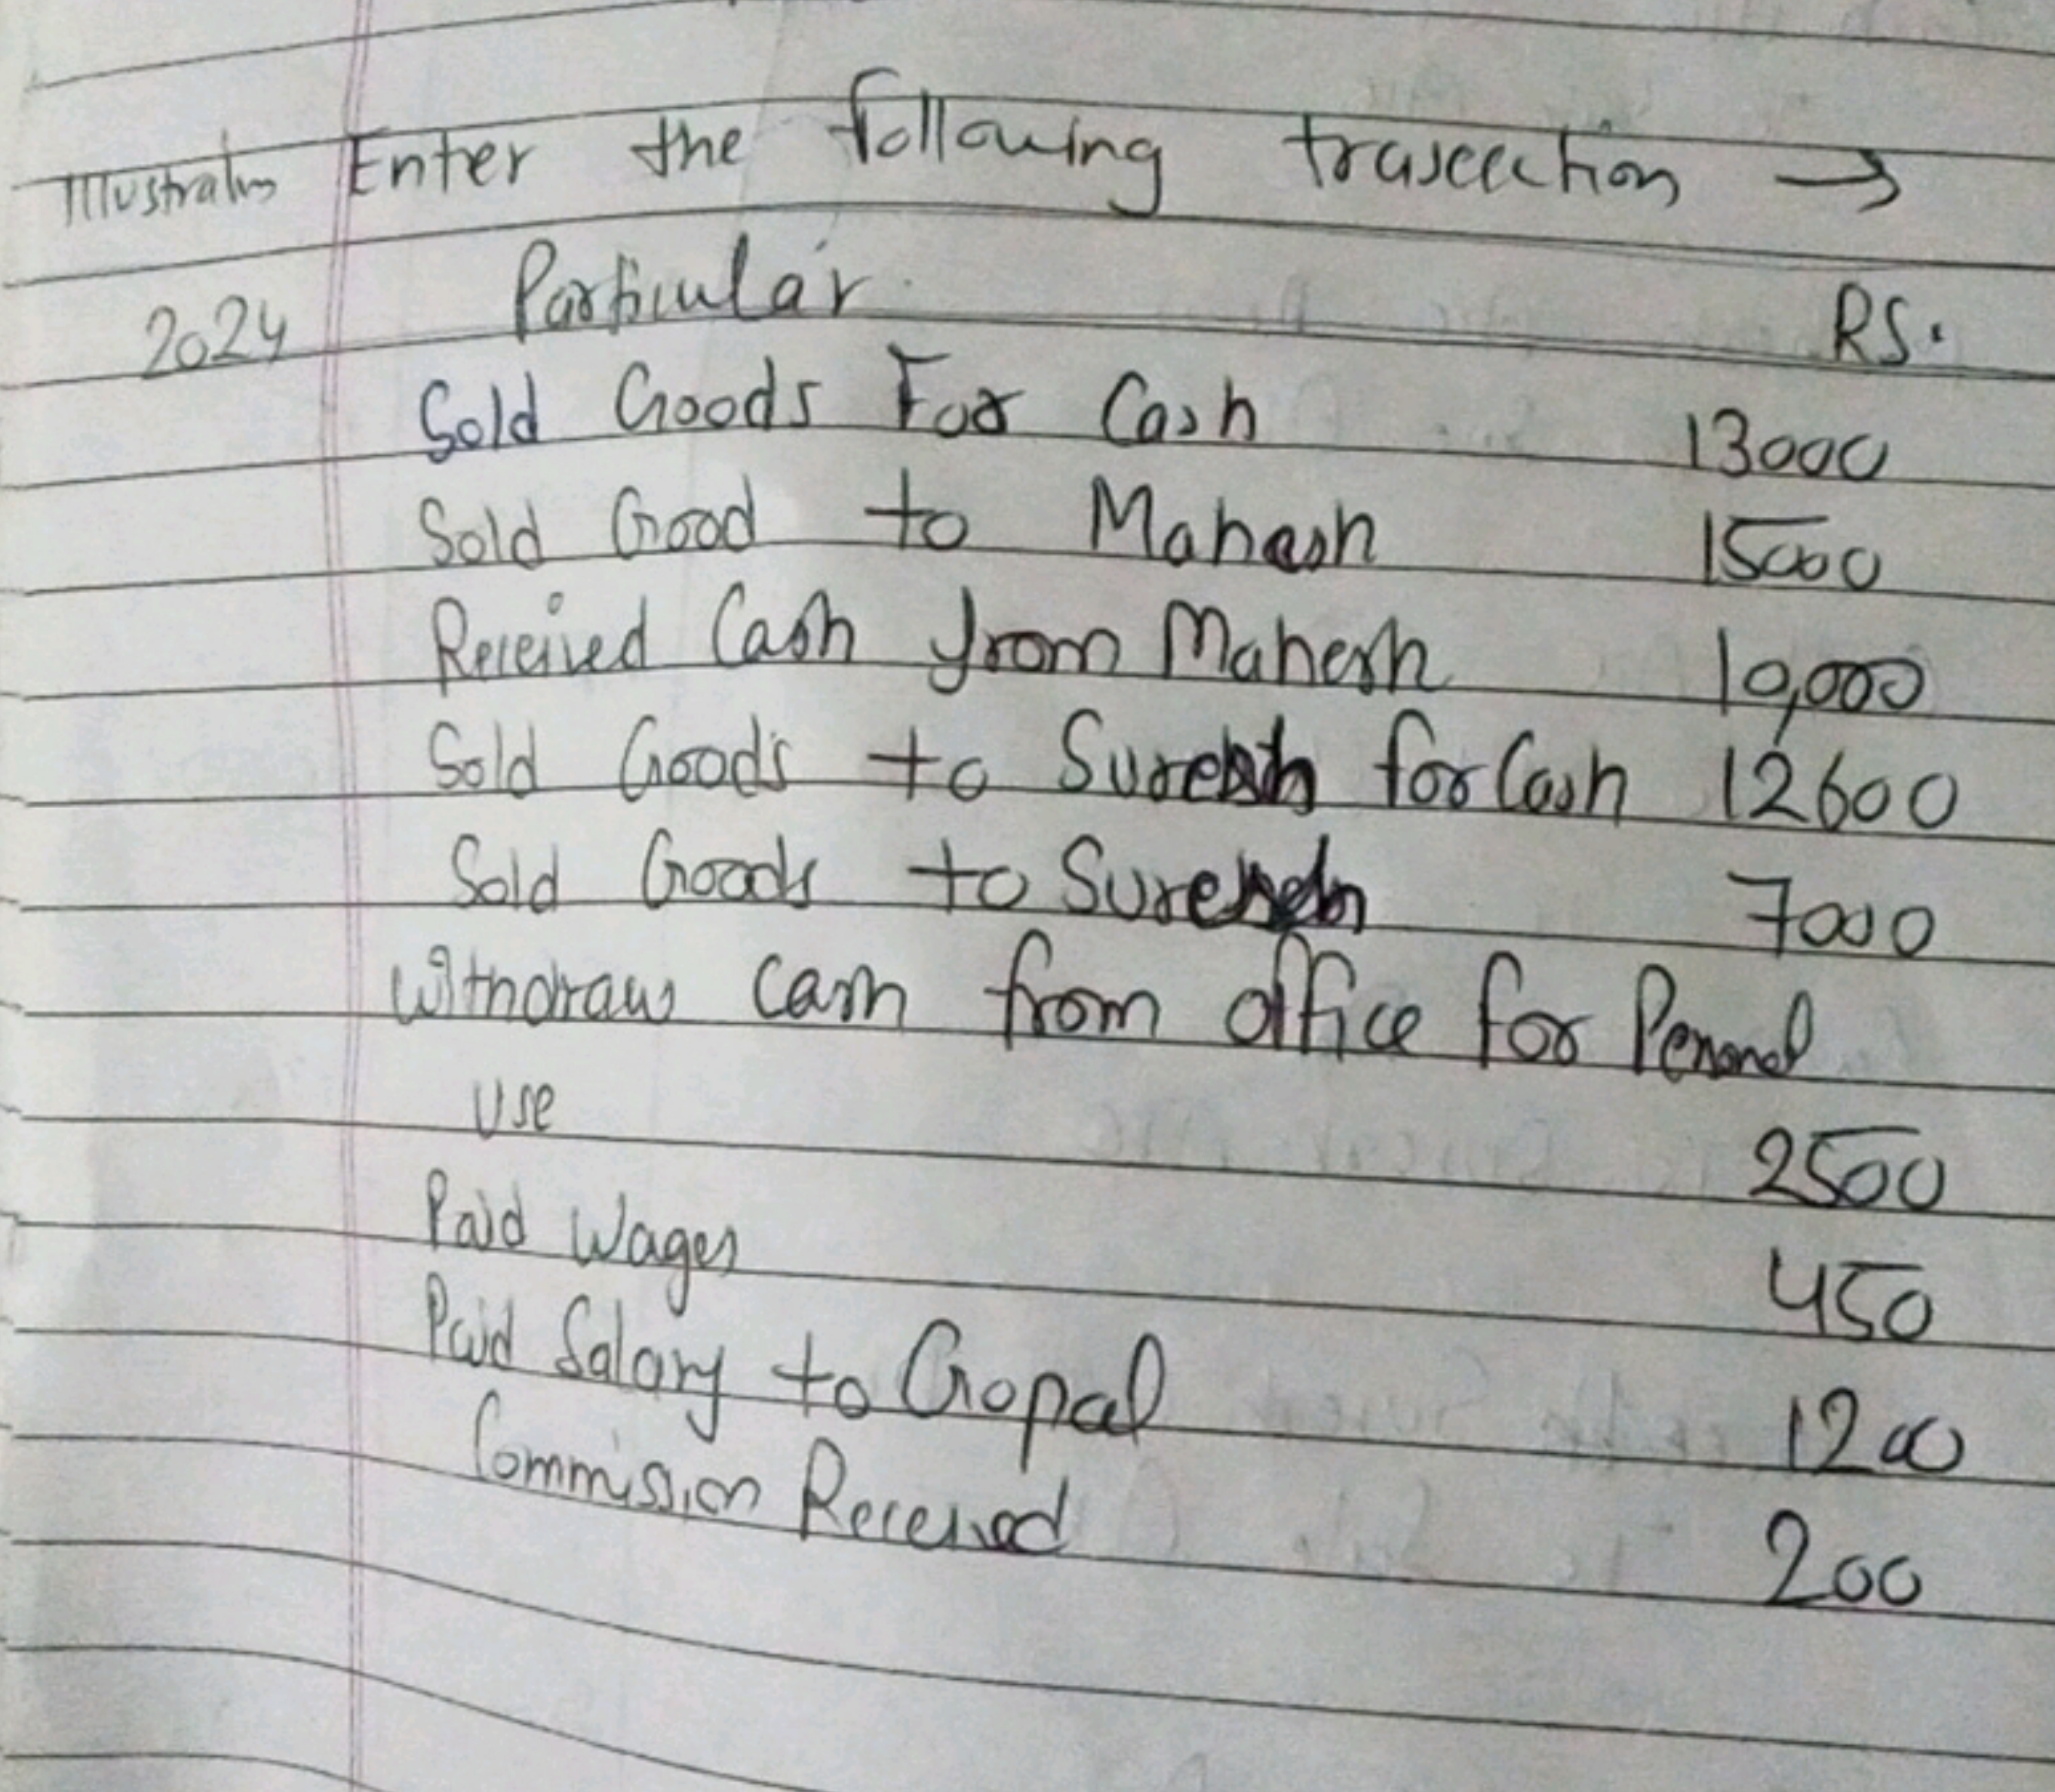 Illustration Enter the following trascection →
2024 Particular RS.
Sold Goods For Cash 13000
Sold Good to Mahesh 15000
Received Cash from Mahesh 10,000
Sold Goods to Suresh for Cash 12600
Sold Goods to Suresh 7000
Withdraw cash from office for Personal
use
2500
Paid Wages 450
Paid Salary to Gopal 1200
Commission Received 200